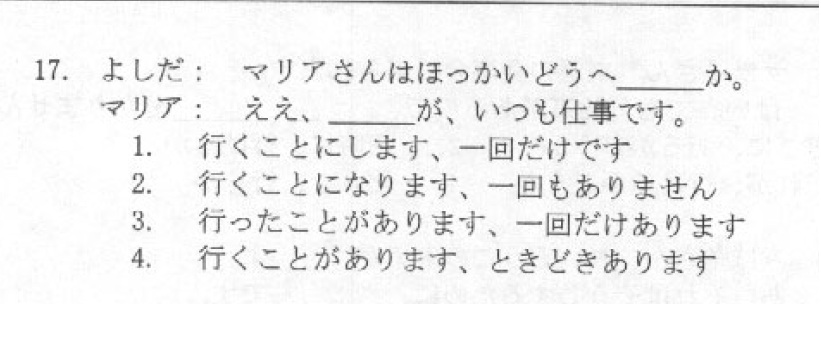 17. よしだ： マリアさんはほっかいどうへ______か。
マリア： ええ、______が、いつも仕事です。
1. 行くことにします、一回だけです
2. 行くことになります、一回もありません
3. 行ったことがあります、一回だけあります
4. 行くことがあります、ときどきあります